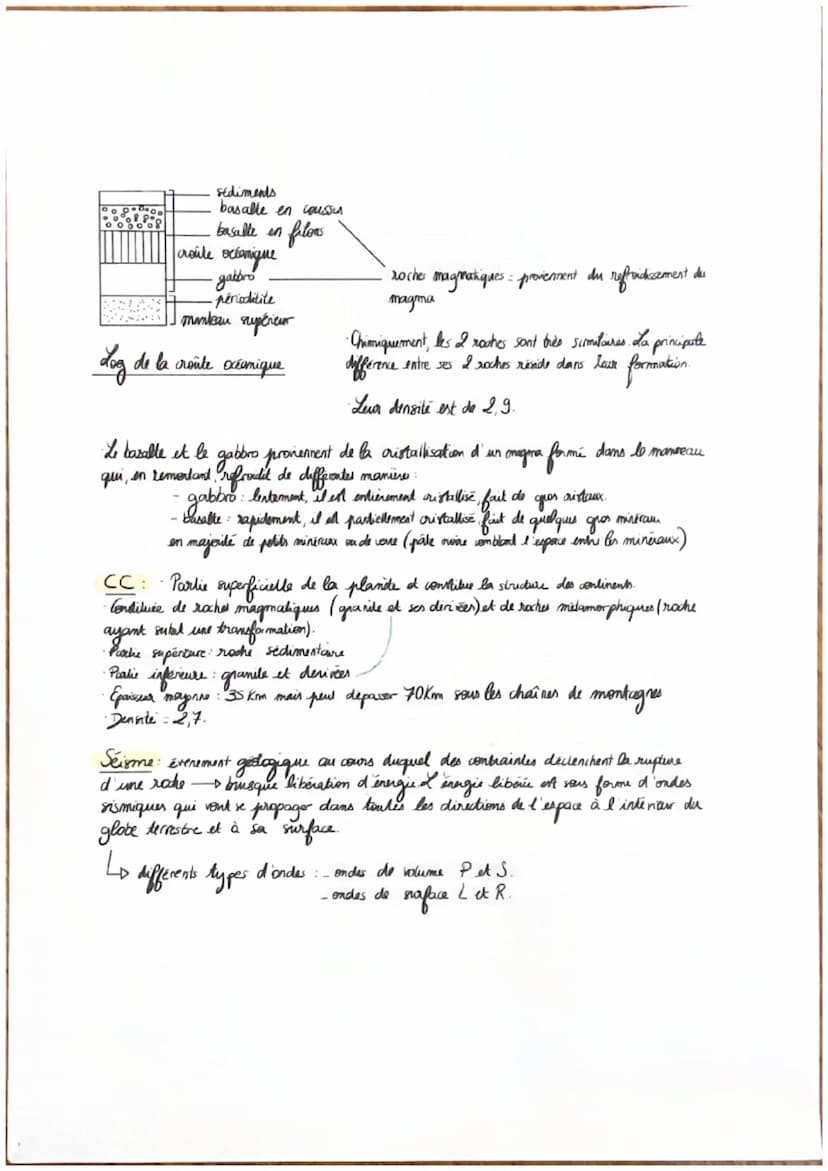 sédiments
basalte en coussin
basalte en filons
croûte océanique
gabbro
péridotite
manteau supérieur
roches magmatiques : proviennent du refroidissement du
magma
Log de la croûte océanique
· Chimiquement, les 2 roches sont très similaires. La principale
différence entre ses 2 roches réside dans leur formation.
· Leur densité est de 2,9.
· Le basalte et le gabbro proviennent de la cristallisation d'un magma formé dans le manteau
qui, en remontant, refroidit de différentes manière :
- gabbro : lentement, il est entièrement cristallisé, fait de gros cristaux.
- basalte : rapidement, il est partiellement cristallisé, fait de quelques gros minéraux
en majorité de petits minéraux ou de verre (pâte noire comblant l'espace entre les minéraux)
CC : · Partie superficielle de la planète et constitue la structure des continents.
· Constituée de roches magmatiques (granite et ses dérivées) et de roches métamorphiques (roche
ayant subit une transformation).
· Partie supérieure : roche sédimentaire
· Partie inférieure : granite et dérivées
· Épaisseur moyenne : 35 Km mais peut dépasser 70Km sous les chaînes de montagnes
· Densité = 2,7.
Séisme : évènement géologique au cours duquel des contraintes déclenchent la rupture
d'une roche → brusque libération d'énergie. L'énergie libérée est sous forme d'ondes
sismiques qui vont se propager dans toutes les directions de l'espace à l'intérieur du
globe terrestre et à sa surface.
↳ différents types d'ondes : - ondes de volume P et S.
- ondes de surface L et R.